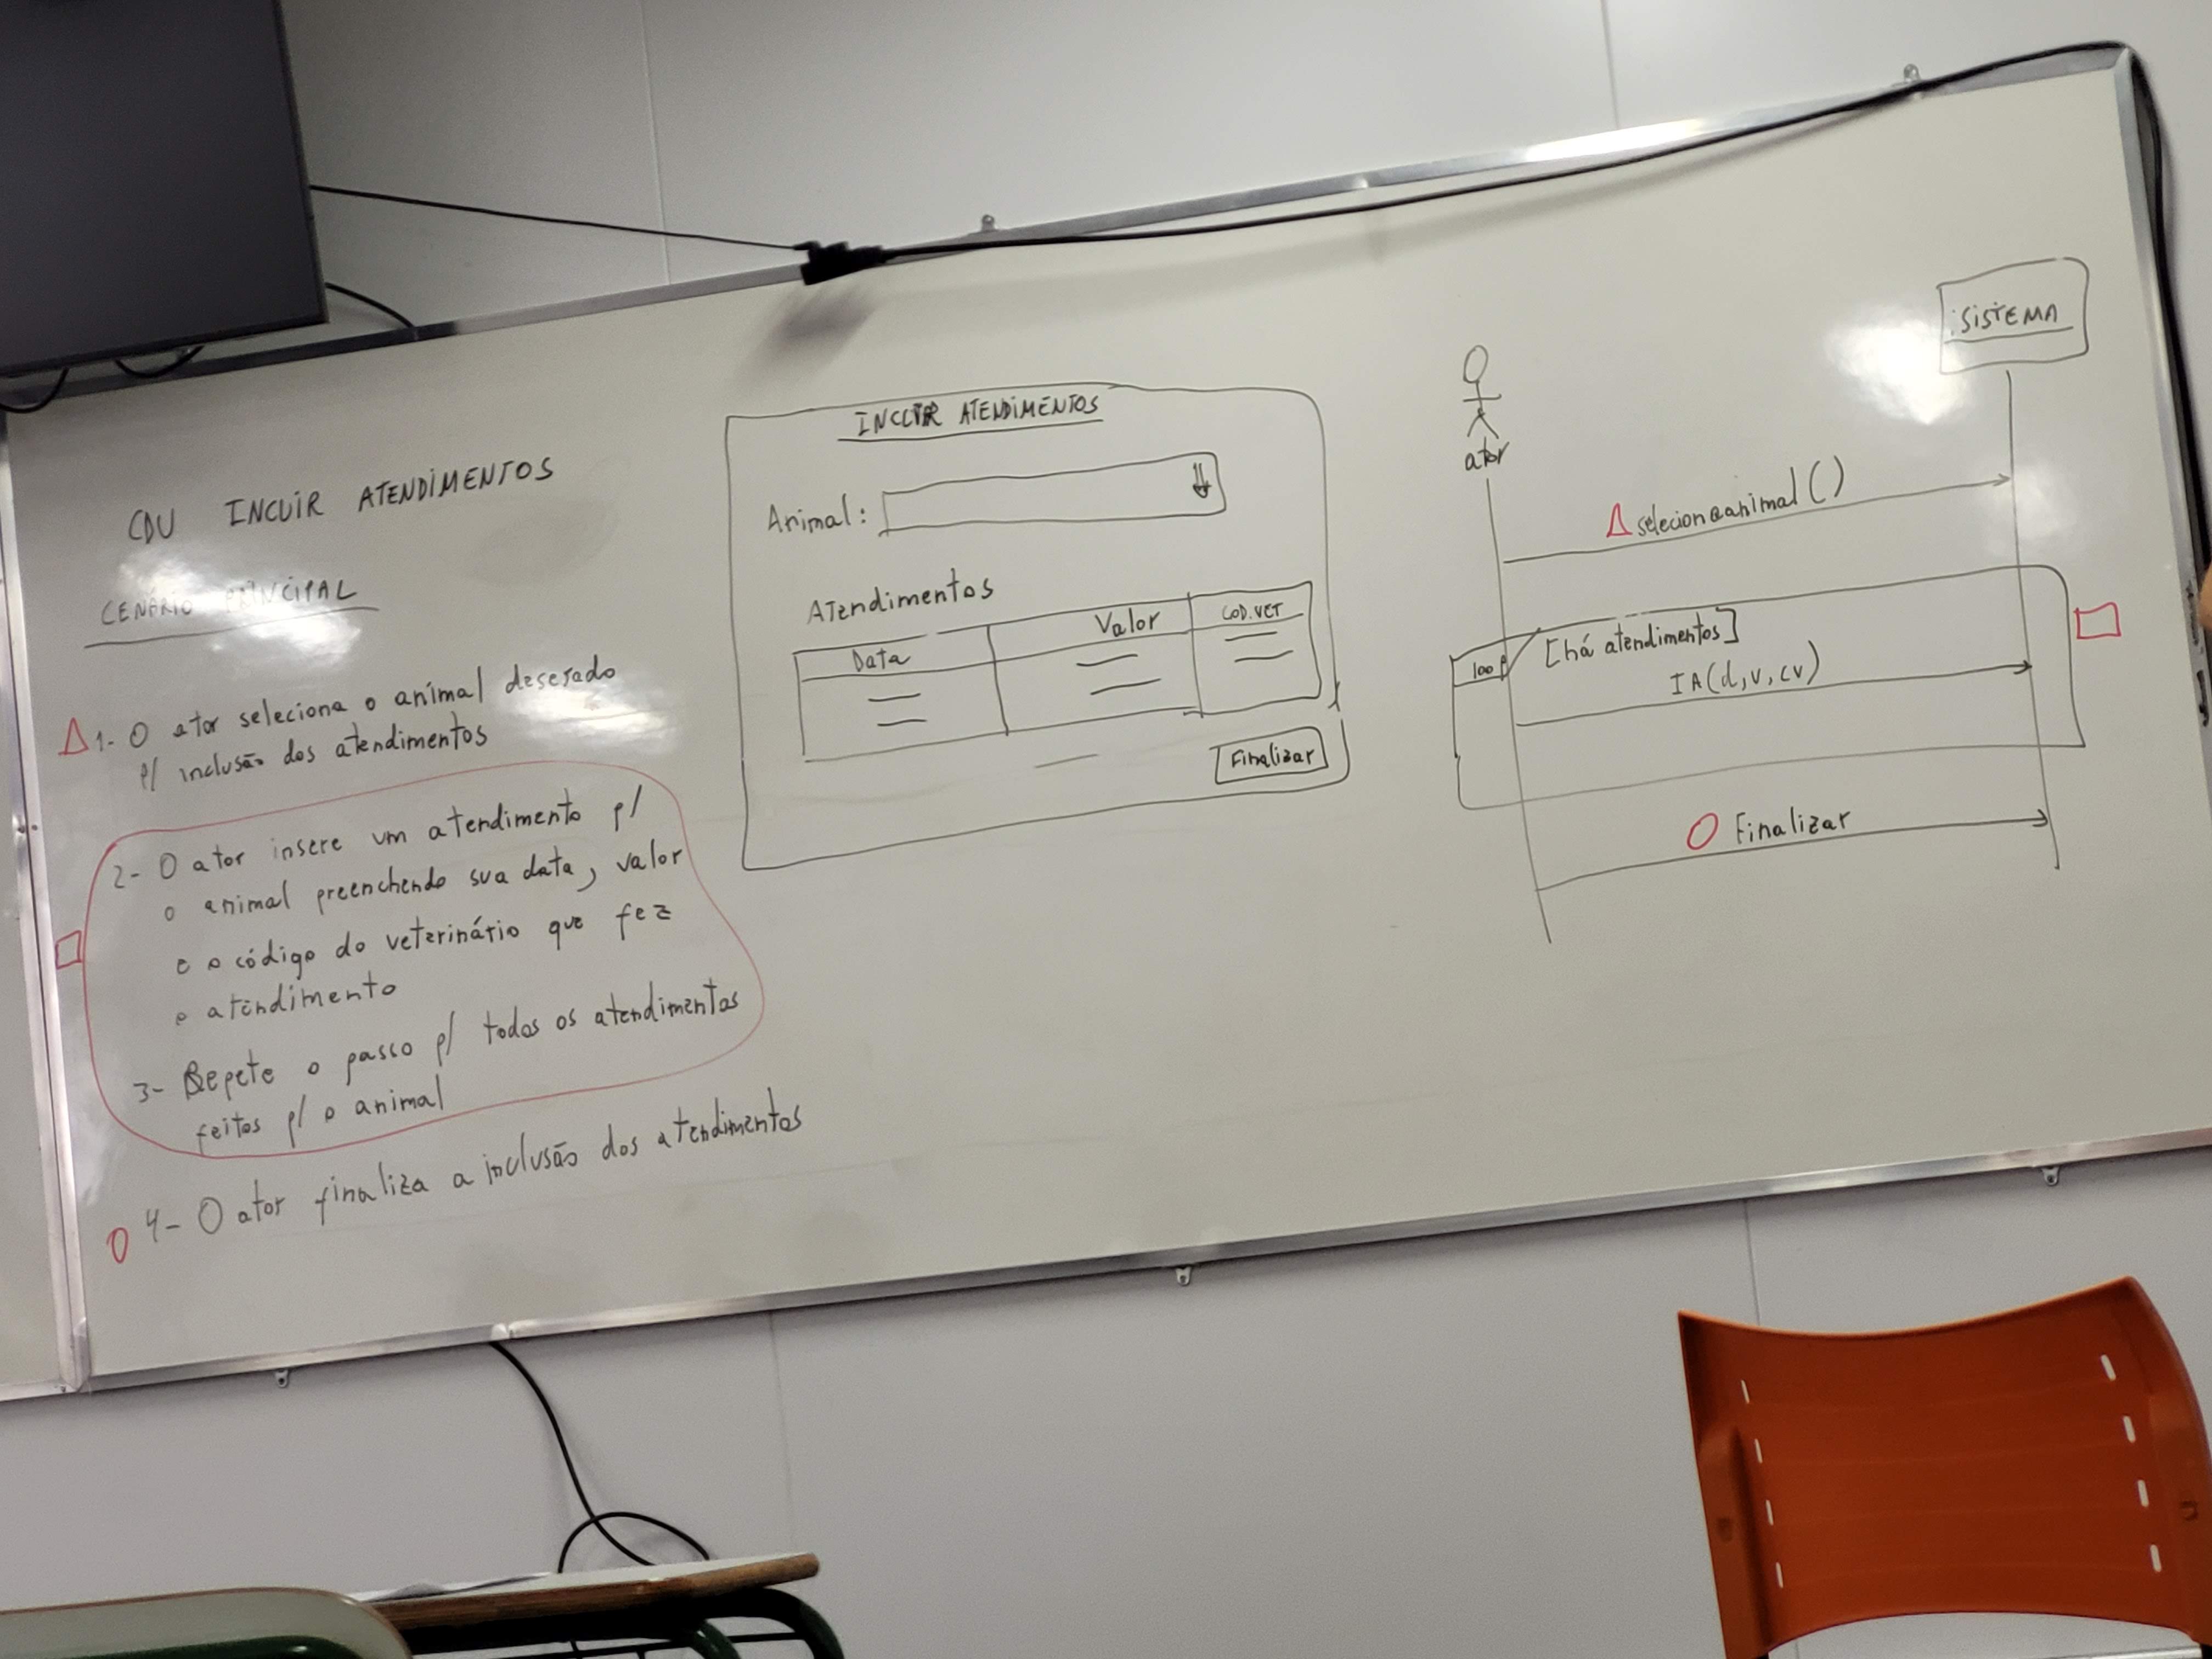 CDU INCUIR ATENDIMENTOS
CENÁRIO PRINCIPAL
1- O ator seleciona o animal desejado
p/ inclusão dos atendimentos
2- O ator insere um atendimento p/
o animal preenchendo sua data, valor
e o código do veterinário que fez
o atendimento
3- Repete o passo p/ todos os atendimentos
feitos p/ o animal
4- O ator finaliza a inclusão dos atendimentos
INCLUIR ATENDIMENTOS
Animal:
Atendimentos
Data Valor COD.VET
Finalizar
ator
:SISTEMA
selecionaanimal()
loop [há atendimentos]
IA(d,v,cv)
Finalizar